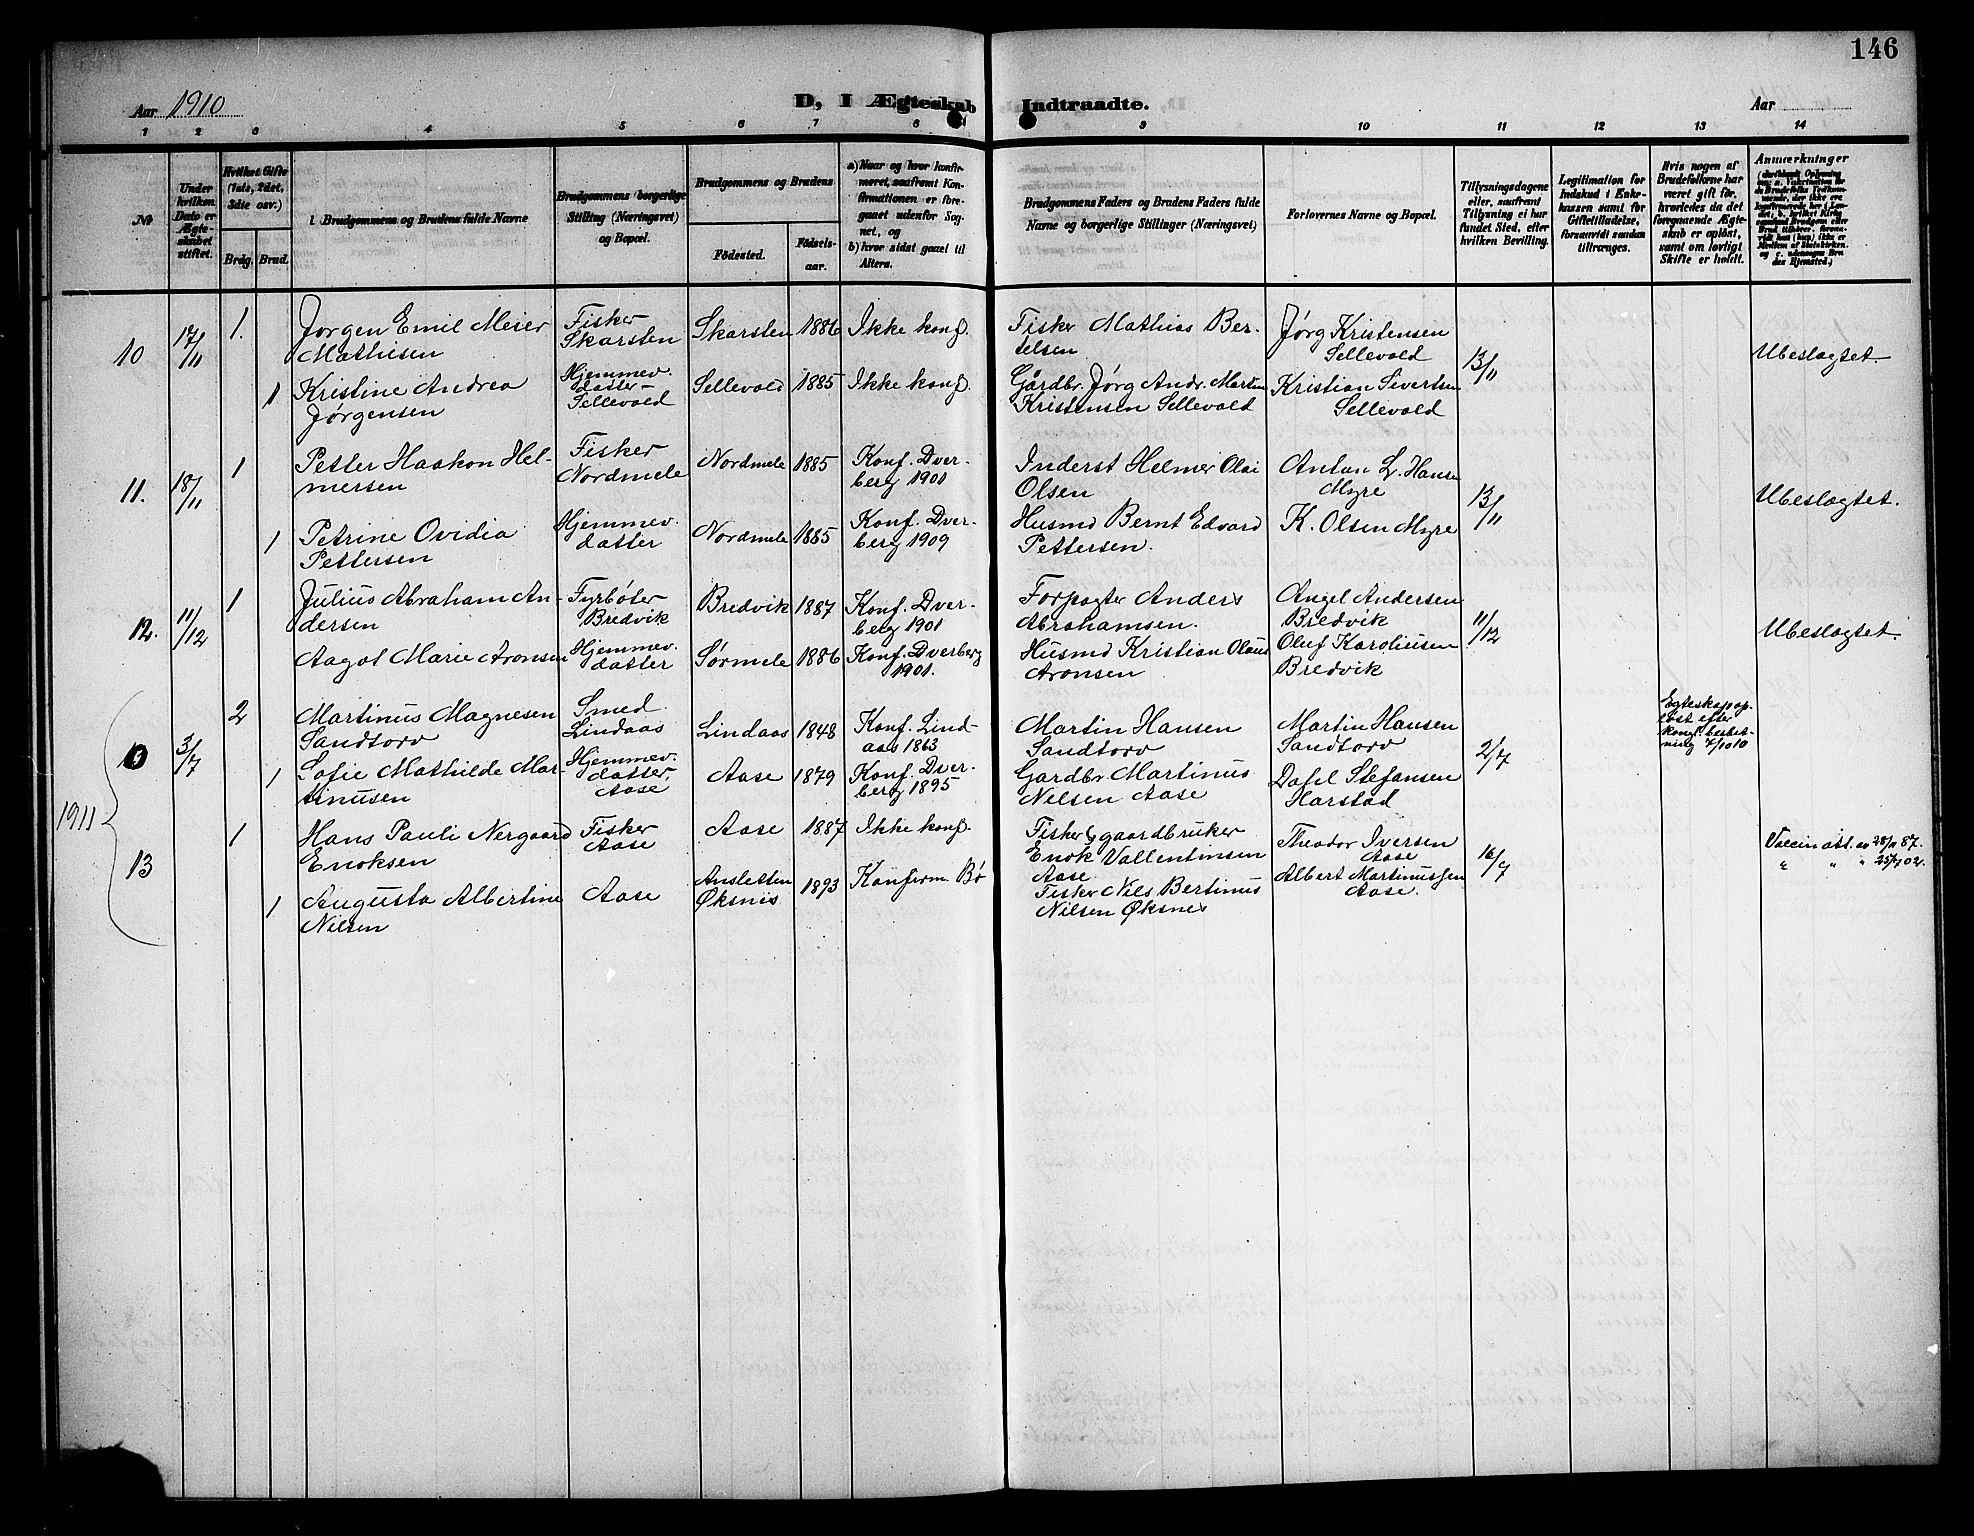 146
Aar 1910
D, I Ægteskab Indtraadte.
Aar
1 2 3 4 5 6 7 8 9 10 11 12 13 14
No
Under
hvilken
Dato er
Ægte-
skabet
stiftet.
Hvilket Gifte
(1ste, 2det,
3die osv.)
Brdg. Brud.
Brudgommens og Brudens fulde Navne
Brudgommens borgerlige
Stilling (Næringsvei)
og Bopæl.
Brudgommens og Brudens
Födested.
Födsels-
aar.
a) Naar og hvor konfir-
meret, saafremt Kon-
firmationen er fore-
gaaet udenfor Sog-
net, og
b) hvor sidst gaaet til
Alters.
Brudgommens Faders og Brudens Faders fulde
Navne og borgerlige Stillinger (Næringsvei)
Forlovernes Navne og Bopæl.
Tillysningsdagene
eller, saafremt
Tillysning ei har
fundet Sted, efter
hvilken Bevilling.
Legitimation for
Indskud i Enke-
kassen samt for
Giftetilladelse,
forsaavidt saadan
tiltrænges.
Hvis nogen af
Brudefolkene har
været gift för,
hvorledes da det
foregaaende Ægte-
skab er oplöst,
samt om lovligt
Skifte er holdt.
Anmærkninger
10
17/11
1.
Jørgen Emil Meier
Mathisen
Fisker
Skarsten
Skarsten
1886
Ikke konf.
Fisker Mathias Ber-
telsen
Jørg Kristensen
Sellevold
13/11
Ubeslægtet
1
Kristine Andrea
Jørgensen
Hjemmev.
datter
Sellevold
Sellevold
1885
Ikke konf.
Gårdbr. Jørg Andr. Martin
Kristensen Sellevold
Kristian Sivertsen
Sellevold
11.
18/11
1
Petter Haakon Hel-
mersen
Fisker
Nordmele
Nordmele
1885
Konf. Dver-
berg 1901
Inderst Helmer Olai
Olsen
Anton L. Hansen
Myre
13/11
Ubeslægtet.
1
Petrine Ovidia
Pettersen
Hjemmev.
datter
Nordmele
1885
Konf. Dver-
berg 1909
Husmd Bernt Edvard
Pettersen.
K. Olsen Myre
12.
11/12
1
Julius Abraham An-
dersen
Fyrbøter
Bredvik
Bredvik
1887
Konf. Dver-
berg 1901
Forpagter Anders
Abrahamsen.
Angel Andersen
Bredvik
11/12
Ubeslægtet.
Aagot Marie Aronsen
Hjemmev.
datter
Sørmele
1886
Konf. Dverberg
1901.
Husmd Kristian Olaus
Aronsen
Oluf Karoliusen
Bredvik
1911
3/7
2
Martinus Magnesen
Sandtorv
Smed
Lindaas
Lindaas
1848
Konf. Lind-
aas 1863
Martin Hansen
Sandtorv
Martin Hansen
Sandtorv
2/7
Egteskap op-
løst efter
kongl. beslut-
ning 7/10 10
1
Sofie Mathilde Mar-
tinusen
Hjemmev.
datter,
Aase
Aase
1879
Konf. Dver-
berg 1895
Gardbr. Martinus
Nilsen Aase
Dahl Stefansen
Harstad
13
1
Hans Pauli Nergaard
Enoksen
Fisker
Aase
Aase
1887
Ikke konf.
Fisker & gaardbruker
Enok Vallentinsen
Aase
Theodor Iversen
Aase
16/7
Vaccin att. av 28/11 87.
" " " 25/7 02.
1
Augusta Albertine
Nilsen
Aase
Ansletten
Øksnes
1893
Konfirm. Bø
Fisker Nils Bertinus
Nilsen Øksnes
Albert Martinussen
Aase.